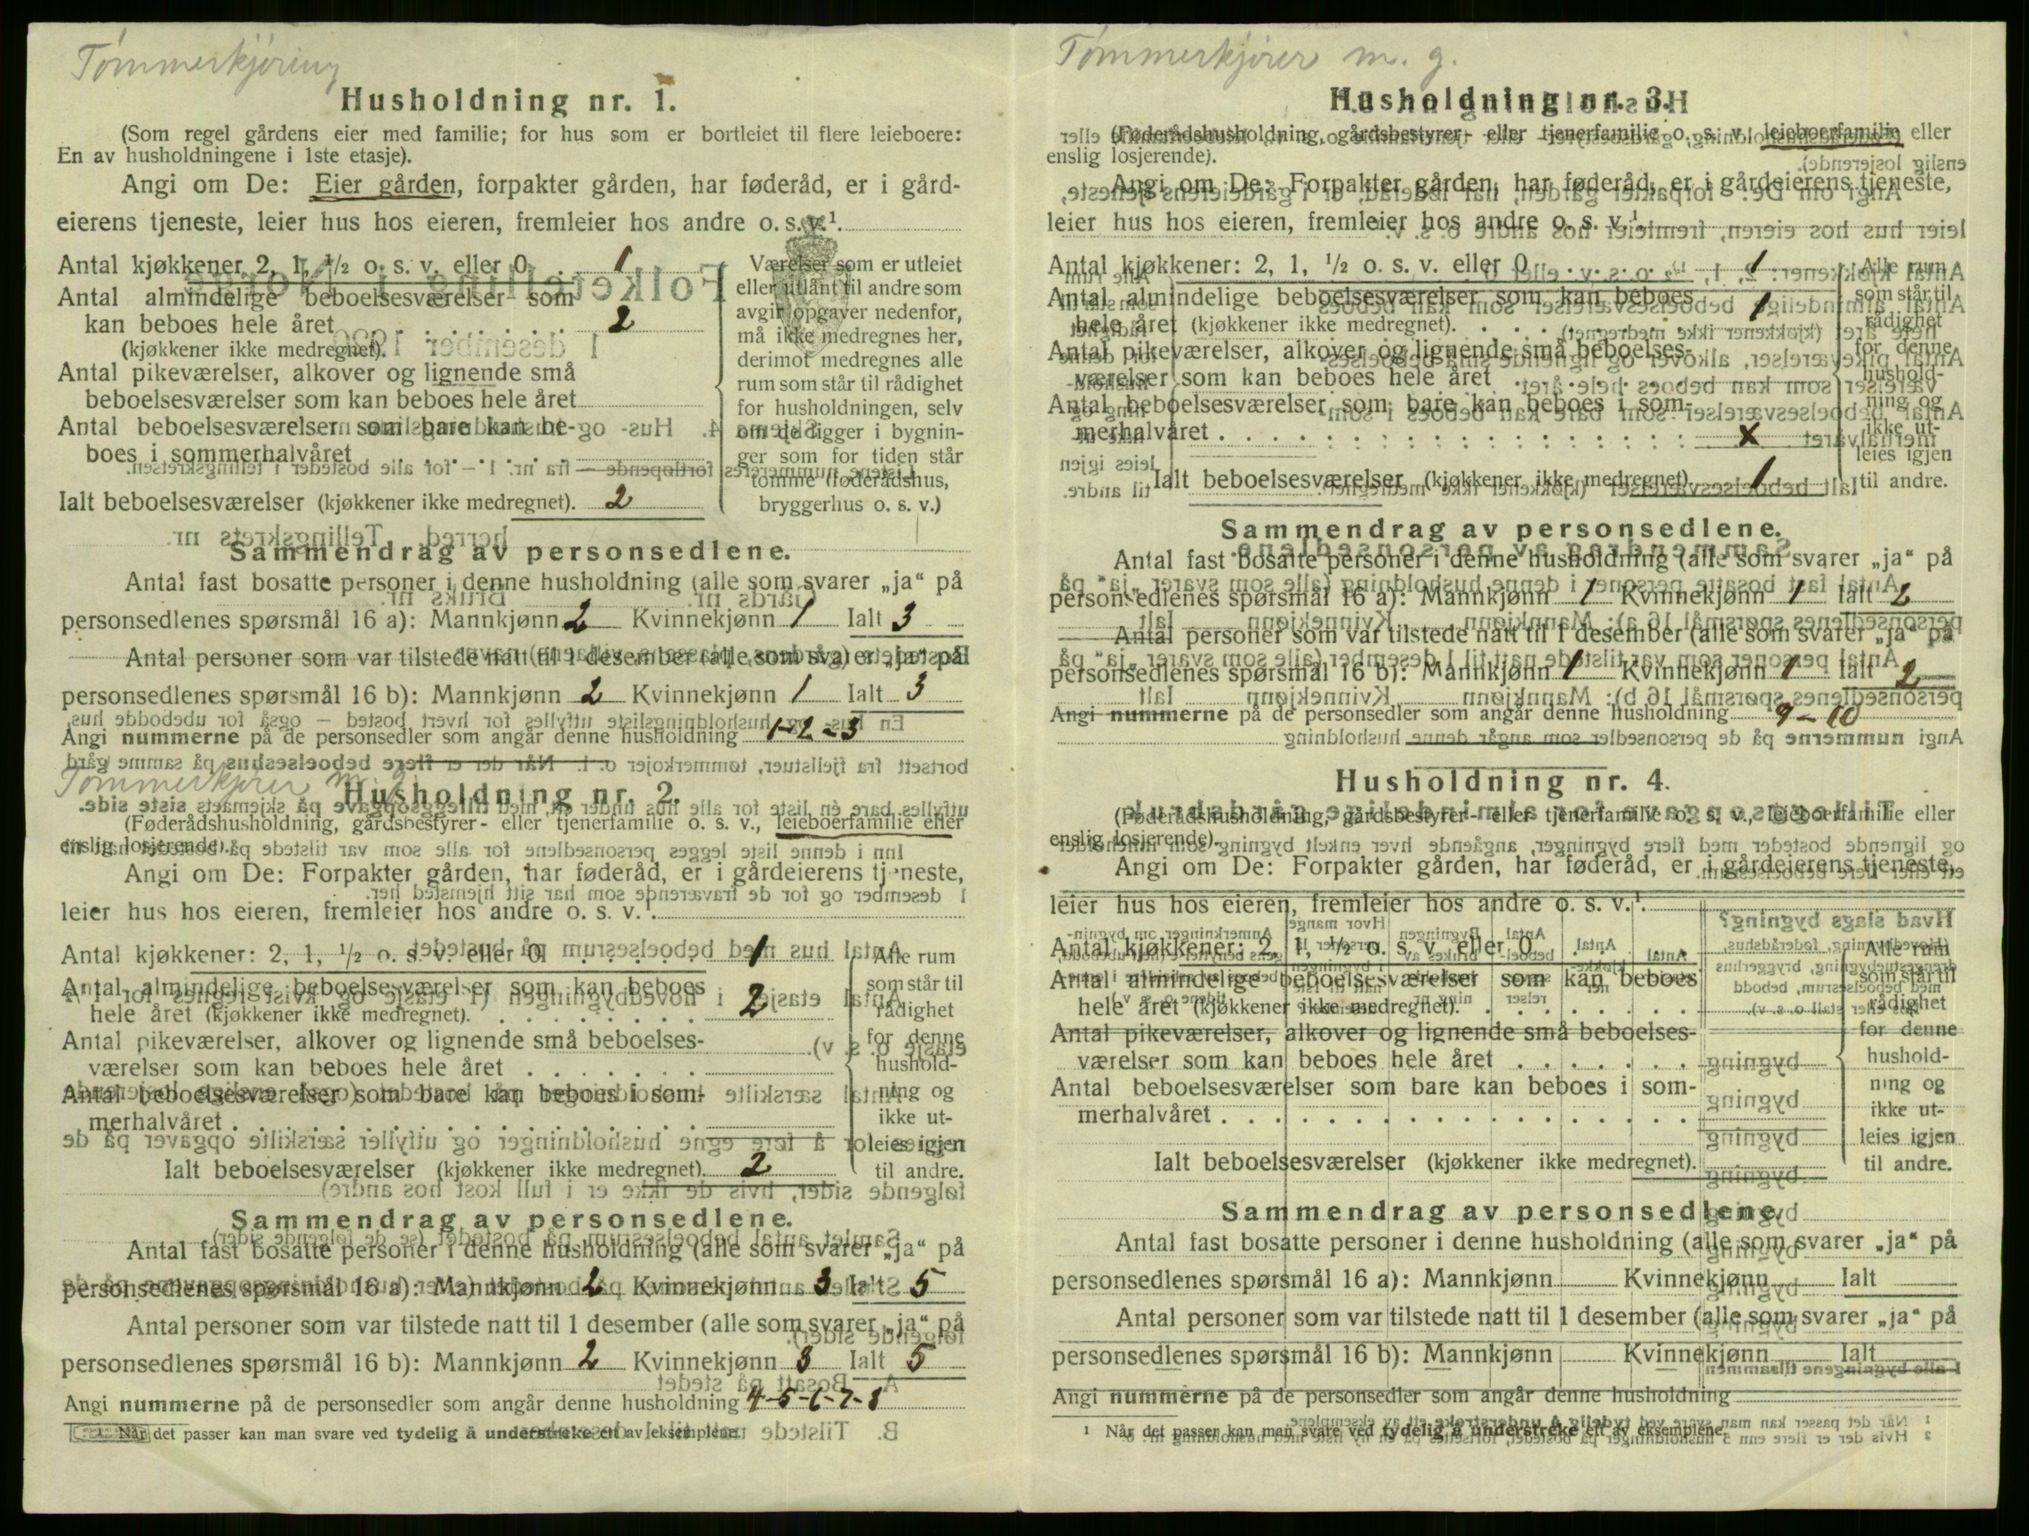 Tømmerkjøring
Husholdning nr. 1.
(Som regel gårdens eier med familie; for hus som er bortleiet til flere leieboere:
En av husholdningene i 1ste etasje).
Angi om De: Eier gården, forpakter gården, har føderåd, er i gård-
eierens tjeneste, leier hus hos eieren, fremleier hos andre o. s. v.¹.
Antal kjøkkener 2, 1, ½ o. s. v. eller 0 . 1
Antal almindelige beboelsesværelser som
kan beboes hele året . . . . . . . 2
(kjøkkener ikke medregnet).
Antal pikeværelser, alkover og lignende små
beboelsesværelser som kan beboes hele året
Antal beboelsesværelser som bare kan be-
boes i sommerhalvåret . . . . .
Ialt beboelsesværelser (kjøkkener ikke medregnet). 2
Værelser som er utleiet
eller utlånt til andre som
avgir opgaver nedenfor,
må ikke medregnes her,
derimot medregnes alle
rum som står til rådighet
for husholdningen, selv
om de ligger i bygnin-
ger som for tiden står
tomme (føderådshus,
bryggerhus o. s. v.)
Sammendrag av personsedlene.
Antal fast bosatte personer i denne husholdning (alle som svarer „ja“ på
personsedlenes spørsmål 16 a): Mannkjønn 2 Kvinnekjønn 1 Ialt 3
Antal personer som var tilstede natt til 1 desember (alle som svarer „ja“ på
personsedlenes spørsmål 16 b): Mannkjønn 2 Kvinnekjønn 1 Ialt 3
Angi nummerne på de personsedler som angår denne husholdning 1-2-3
Tømmerkjører m. g.
Husholdning nr. 2.
(Føderådshusholdning, gårdsbestyrer- eller tjenerfamilie o. s. v., leieboerfamilie eller
enslig losjerende).
Angi om De: Forpakter gården, har føderåd, er i gårdeierens tjeneste,
leier hus hos eieren, fremleier hos andre o. s. v.¹.
Antal kjøkkener: 2, 1, ½ o. s. v. eller 0 . . . . . 1
Antal almindelige beboelsesværelser som kan beboes
hele året (kjøkkener ikke medregnet). . . . . . . . 2
Antal pikeværelser, alkover og lignende små beboelses-
værelser som kan beboes hele året . . . . . . .
Antal beboelsesværelser som bare kan beboes i som-
merhalvåret . . . . . . . . . . . . . . . . .
Ialt beboelsesværelser (kjøkkener ikke medregnet). 2
Alle rum
som står til
rådighet
for denne
hushold-
ning og
ikke ut-
leies igjen
til andre.
Sammendrag av personsedlene.
Antal fast bosatte personer i denne husholdning (alle som svarer „ja“ på
personsedlenes spørsmål 16 a): Mannkjønn 2 Kvinnekjønn 3 Ialt 5
Antal personer som var tilstede natt til 1 desember (alle som svarer „ja“ på
personsedlenes spørsmål 16 b): Mannkjønn 2 Kvinnekjønn 3 Ialt 5
Angi nummerne på de personsedler som angår denne husholdning 4-5-6-7-8
¹ Når det passer kan man svare ved tydelig å understreke ett av eksemplene.
Tømmerkjører m. g.
Husholdning nr. 3.
(Føderådshusholdning, gårdsbestyrer- eller tjenerfamilie o. s. v. leieboerfamilie eller
enslig losjerende).
Angi om De: Forpakter gården, har føderåd, er i gårdeierens tjeneste,
leier hus hos eieren, fremleier hos andre o. s. v.¹.
Antal kjøkkener: 2, 1, ½ o. s. v. eller 0 . . . . . 1
Antal almindelige beboelsesværelser som kan beboes
hele året (kjøkkener ikke medregnet). . . . . . . . 1
Antal pikeværelser, alkover og lignende små beboelses-
værelser som kan beboes hele året . . . . . . .
Antal beboelsesværelser som bare kan beboes i som-
merhalvåret . . . . . . . . . . . . . . . . . x
Ialt beboelsesværelser (kjøkkener ikke medregnet). 1
Alle rum
som står til
rådighet
for denne
hushold-
ning og
ikke ut-
leies igjen
til andre.
Sammendrag av personsedlene.
Antal fast bosatte personer i denne husholdning (alle som svarer „ja“ på
personsedlenes spørsmål 16 a): Mannkjønn 1 Kvinnekjønn 1 Ialt 2
Antal personer som var tilstede natt til 1 desember (alle som svarer „ja“ på
personsedlenes spørsmål 16 b): Mannkjønn 1 Kvinnekjønn 1 Ialt 2
Angi nummerne på de personsedler som angår denne husholdning 9-10
Husholdning nr. 4.
(Føderådshusholdning, gårdsbestyrer- eller tjenerfamilie o. s. v., leieboerfamilie eller
enslig losjerende).
Angi om De: Forpakter gården, har føderåd, er i gårdeierens tjeneste,
leier hus hos eieren, fremleier hos andre o. s. v.¹.
Antal kjøkkener: 2, 1, ½ o. s. v. eller 0
Antal almindelige beboelsesværelser som kan beboes
hele året (kjøkkener ikke medregnet). . . . . . . .
Antal pikeværelser, alkover og lignende små beboelses-
værelser som kan beboes hele året . . . . . . .
Antal beboelsesværelser som bare kan beboes i som-
merhalvåret . . . . . . . . . . . . . . . . .
Ialt beboelsesværelser (kjøkkener ikke medregnet).
Alle rum
som står til
rådighet
for denne
hushold-
ning og
ikke ut-
leies igjen
til andre.
Sammendrag av personsedlene.
Antal fast bosatte personer i denne husholdning (alle som svarer „ja“ på
personsedlenes spørsmål 16 a): Mannkjønn Kvinnekjønn Ialt
Antal personer som var tilstede natt til 1 desember (alle som svarer „ja“ på
personsedlenes spørsmål 16 b): Mannkjønn Kvinnekjønn Ialt
Angi nummerne på de personsedler som angår denne husholdning
¹ Når det passer kan man svare ved tydelig å understreke ett av eksemplene.